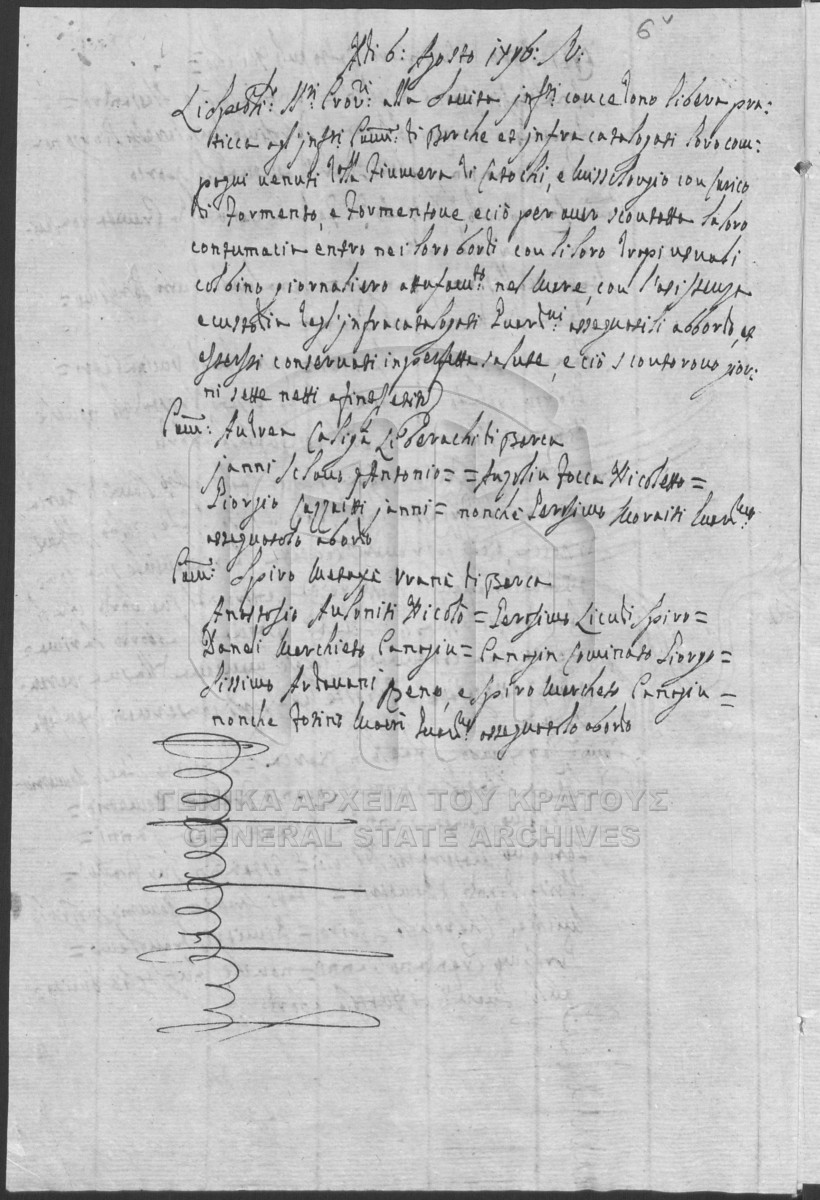 6
Adi 6: Agosto 1796: S.V:
Li Spett.li SS.ri Prov.ri alla Sanità infr.i concedono libera pra:
tticca agl'infr.i Cam.i di Barche et infracatalogati loro com:
pagni venuti dalla Fiumera di Catochi, e Missolongio con carico
di Formento, e Formentone, e ciò per aver scontatta la loro
contumacia entro nei loro bordi con li loro drapi usuali
col bino giornaliero attufam.to nel mare, con l'assistenza
e custodia degl'infracatalogati Guard.ni assegnatili a bordo, et
essersi conservati in perfetta salute, e ciò scontarono gior:
ni sette netti
Cam: Andrea Caliga di Barca
Janni Sclavo Antonio = = Anzolin Focca Nicoletto =
Giorgio Cazzaitti Janni = nonche Gerasimo Moraiti Guard.no
assegnatolo a bordo
Cam: Spiro Metaxà Vrana di Barca
Anastasio Auloniti Nicolò = Gerasimo Licudi Spiro =
Daneli Marcheto Canagin = Canagin Cominato Giorgo =
Sissimo Ardavani Zeno, e Spiro Marcheto Canagin =
nonche Fotino Mavri Guard.no assegnatolo a bordo
ΓΕΝΙΚΑ ΑΡΧΕΙΑ ΤΟΥ ΚΡΑΤΟΥΣ
GENERAL STATE ARCHIVES